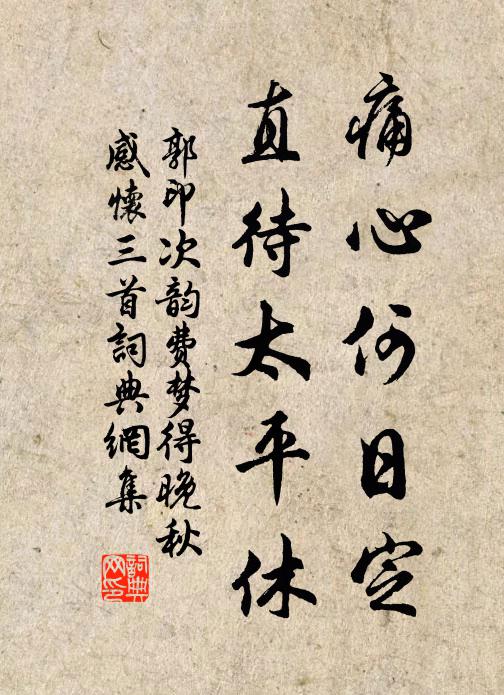 痛心何日定
直待太平休
郭印次韵费梦得晚秋
感懷三首詞典網集
詞典
网印